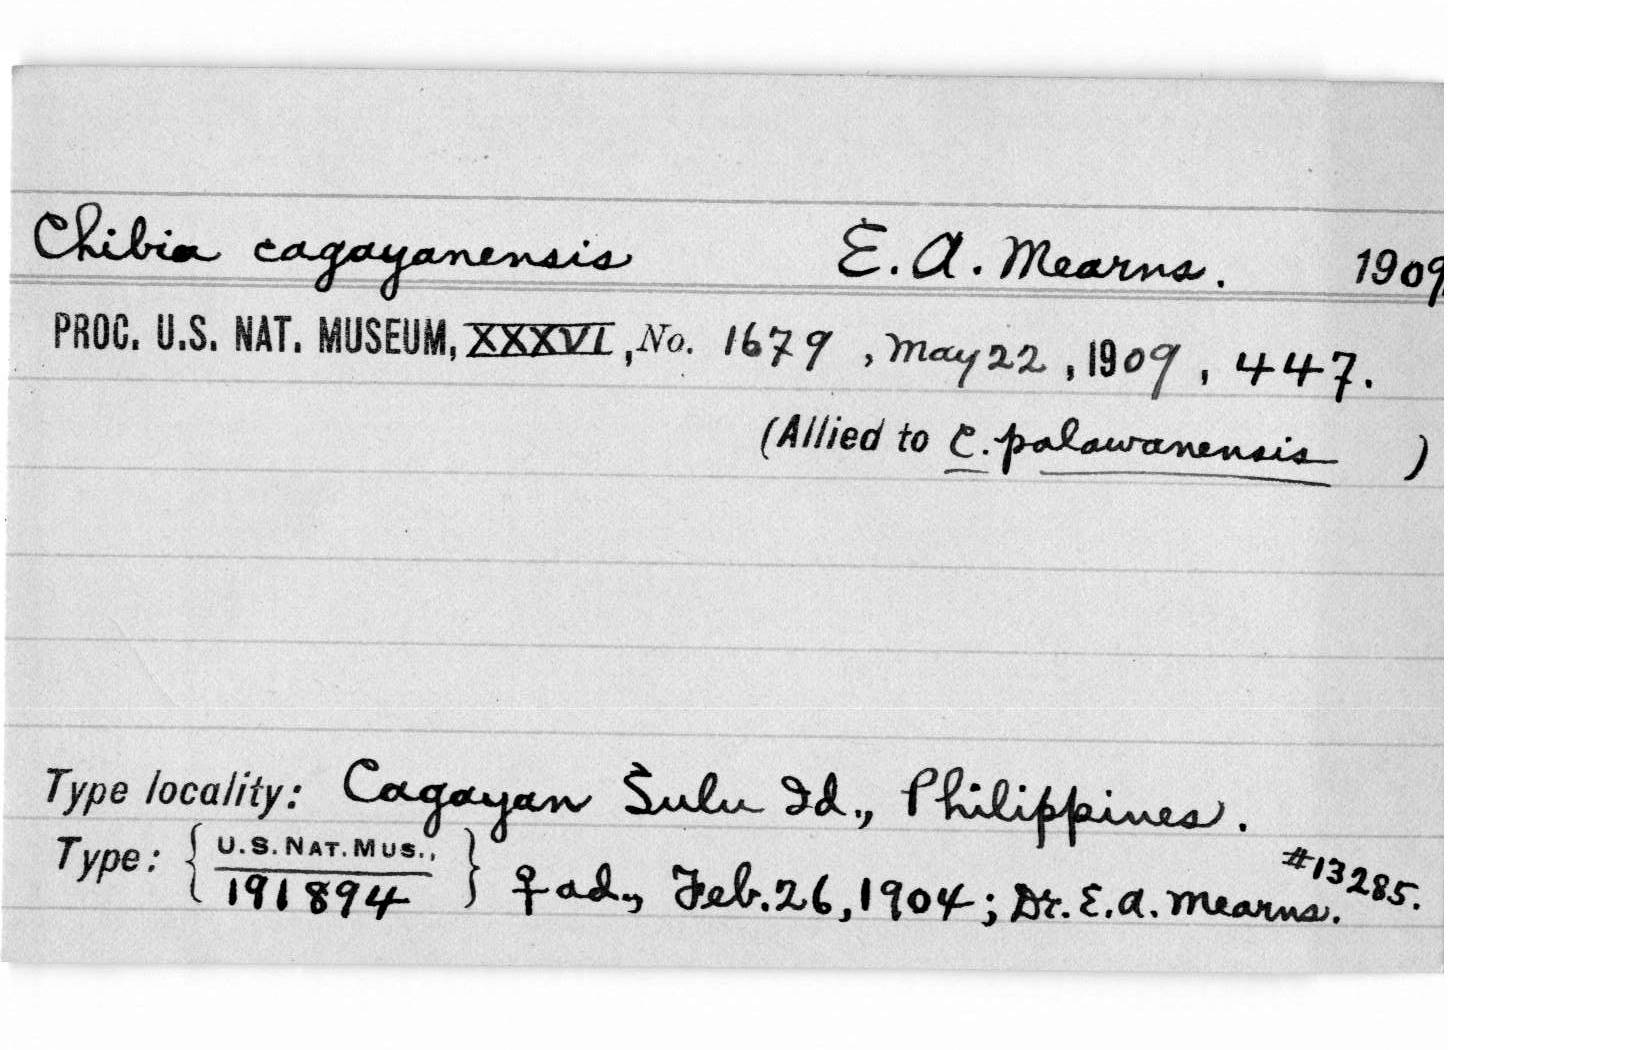 Chibia cagayanensis E. A. Mearns. 1909
PROC. U.S. NAT. MUSEUM, XXXVI, No. 1679, May 22, 1909, 447.
(Allied to C. palawanensis )
Type locality: Cagayan Sulu Id., Philippines.
Type: { U.S. NAT. MUS., 191894 } ♀ ad., Feb. 26, 1904; Dr. E. A. Mearns. #13285.